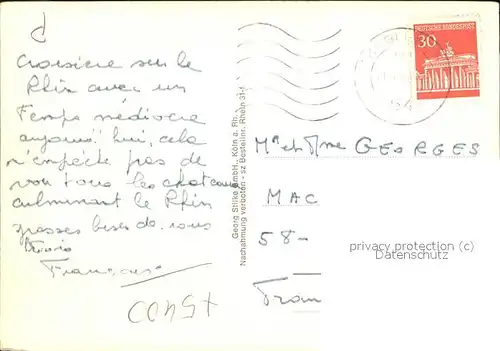 Croisière sur le
Rhin avec un
Temps médiocre
aujourd'hui, cela
n'empêche pas de
voir tous les chateaux
culminant le Rhin
grosses bises de nous
trois
Françoise
+5400
Georg Stilke GmbH., Köln a. Rh.
Nachahmung verboten - sz Bestellnr. Rhein 31-f
DEUTSCHE BUNDESPOST
30
54
Mr et Mme GEORGES
MAC
58-
Fran
privacy protection (c)
Datenschutz